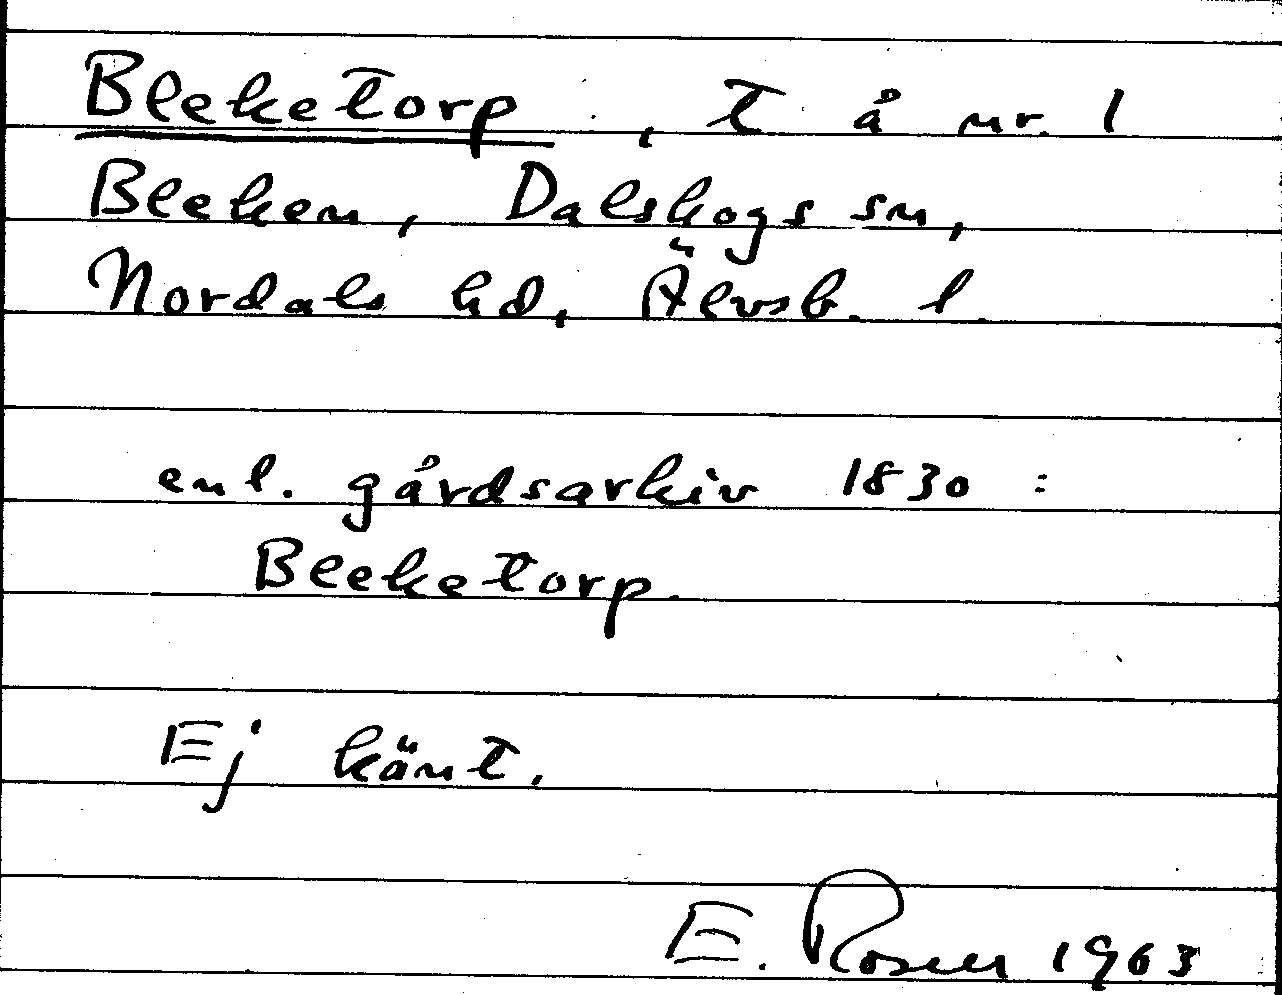 Bleketorp, t å nr. 1
Bleken, Dalskogs sn,
Nordals hd, Älvsb. l.
enl. gårdsarkiv 1830:
Bleketorp.
Ej känt.
E. Rosell 1963